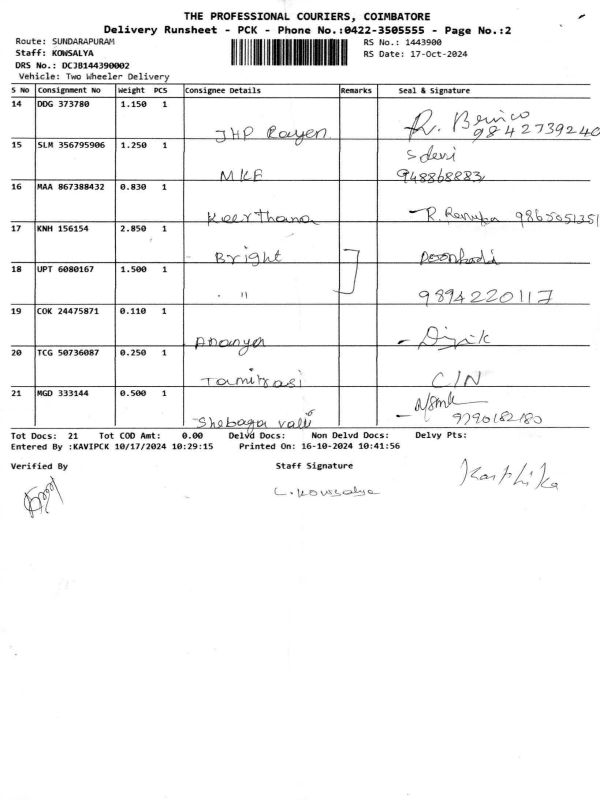 THE PROFESSIONAL COURIERS, COIMBATORE
Delivery Runsheet - PCK - Phone No.:0422-3505555 - Page No.:2
Route: SUNDARAPURAM
RS No.: 1443900
Staff: KOWSALYA
RS Date: 17-Oct-2024
DRS No.: DCJB144390002
Vehicle: Two Wheeler Delivery
S No Consignment No Weight PCS Consignee Details Remarks Seal & Signature
14 DDG 373780 1.150 1
JHP Rayen R. 9842739240
15 SLM 356795906 1.250 1 S devi
948868883
16 MAA 867388432 0.830 1
Keerthana - R. Renuka 9865051351
17 KNH 156154 2.850 1
Bright
18 UPT 6080167 1.500 1
" 9894220117
19 COK 24475871 0.110 1
Ananya
20 TCG 50736087 0.250 1
21 MGD 333144 0.500 1
9790182180
Tot Docs: 21 Tot COD Amt: 0.00 Delvd Docs: Non Delvd Docs: Delvy Pts:
Entered By :KAVIPCK 10/17/2024 10:29:15 Printed On: 16-10-2024 10:41:56
Verified By Staff Signature
L. Kowsalya Karthika